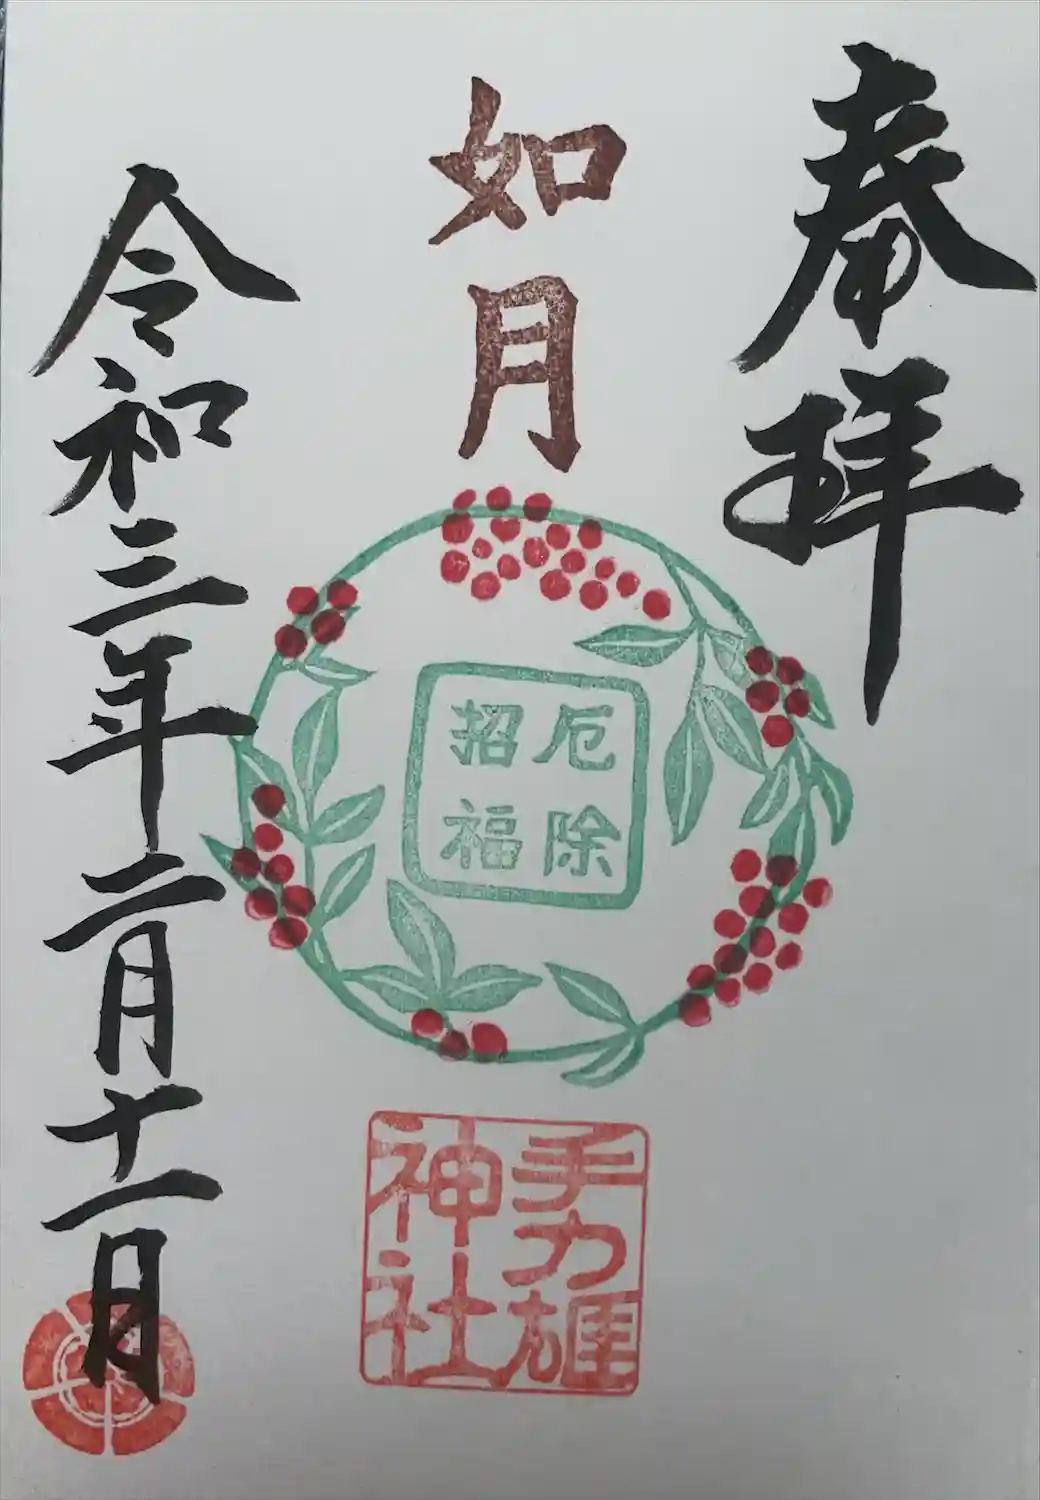 奉拝
如月
厄除
招福
手力雄
神社
令和三年二月十一日